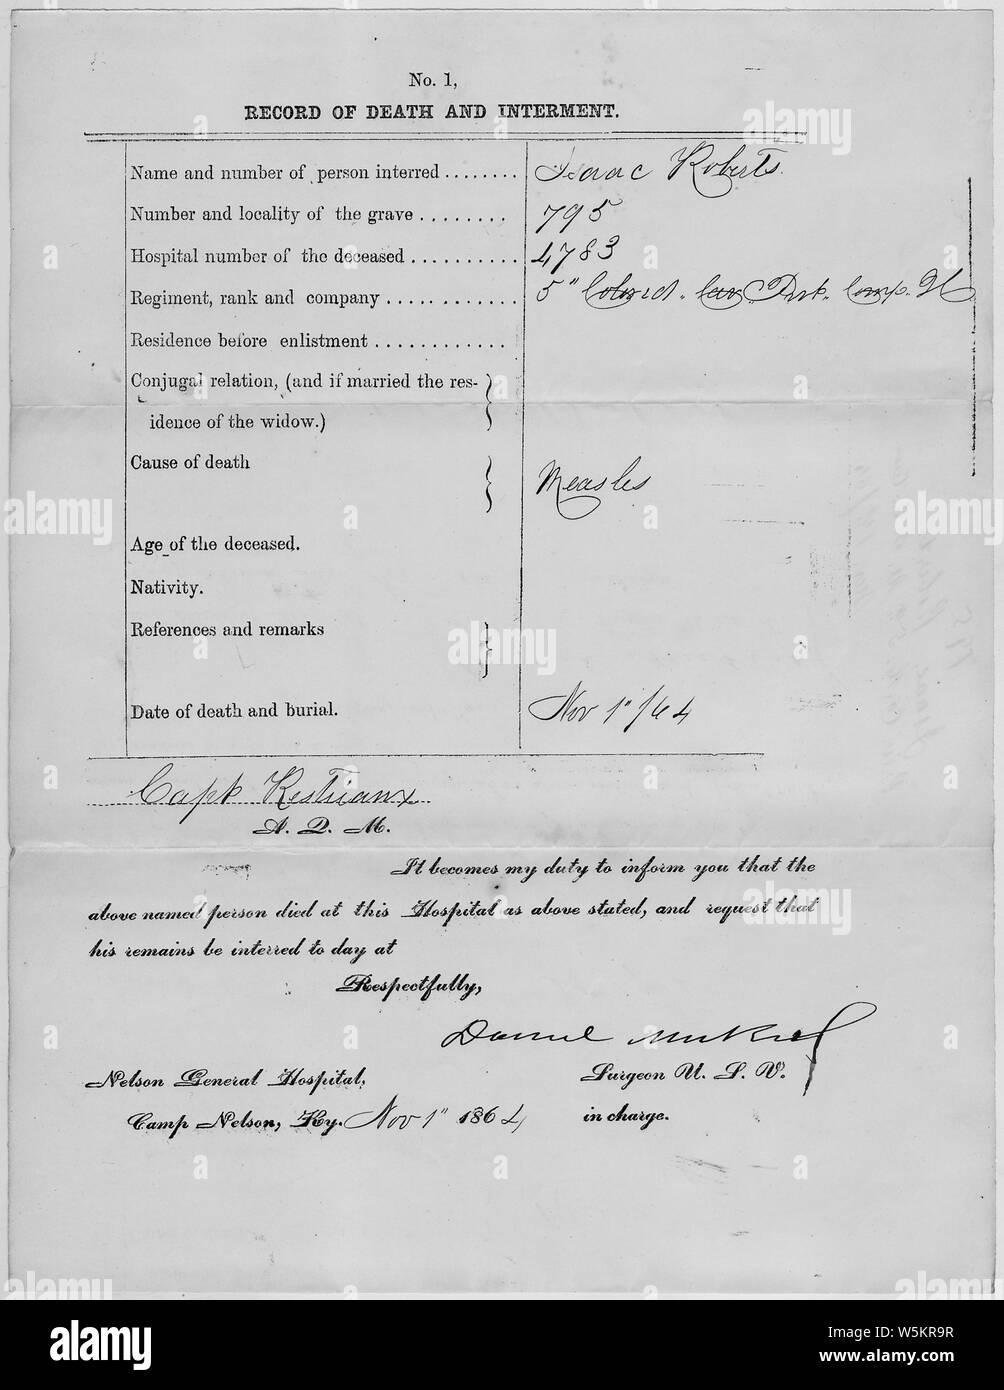 No. 1,
RECORD OF DEATH AND INTERMENT.
Name and number of person interred ........ Isaac Roberts.
Number and locality of the grave ........ 795
Hospital number of the deceased .......... 4783
Regiment, rank and company ............ 5" Colored. Cav Comp. H
Residence before enlistment ............
Conjugal relation, (and if married the res-
idence of the widow.)
Cause of death Measles
Age of the deceased.
Nativity.
References and remarks
Date of death and burial. Nov 1" /64
Capt
A. Q. M.
It becomes my duty to inform you that the
above named person died at this Hospital as above stated, and request that
his remains be interred to day at
Respectfully,
Daniel
Nelson General Hospital, Surgeon U. S. V.
Camp Nelson, Ky. Nov 1" 1864 in charge.
alamy
Image ID: W5KR9R
www.alamy.com